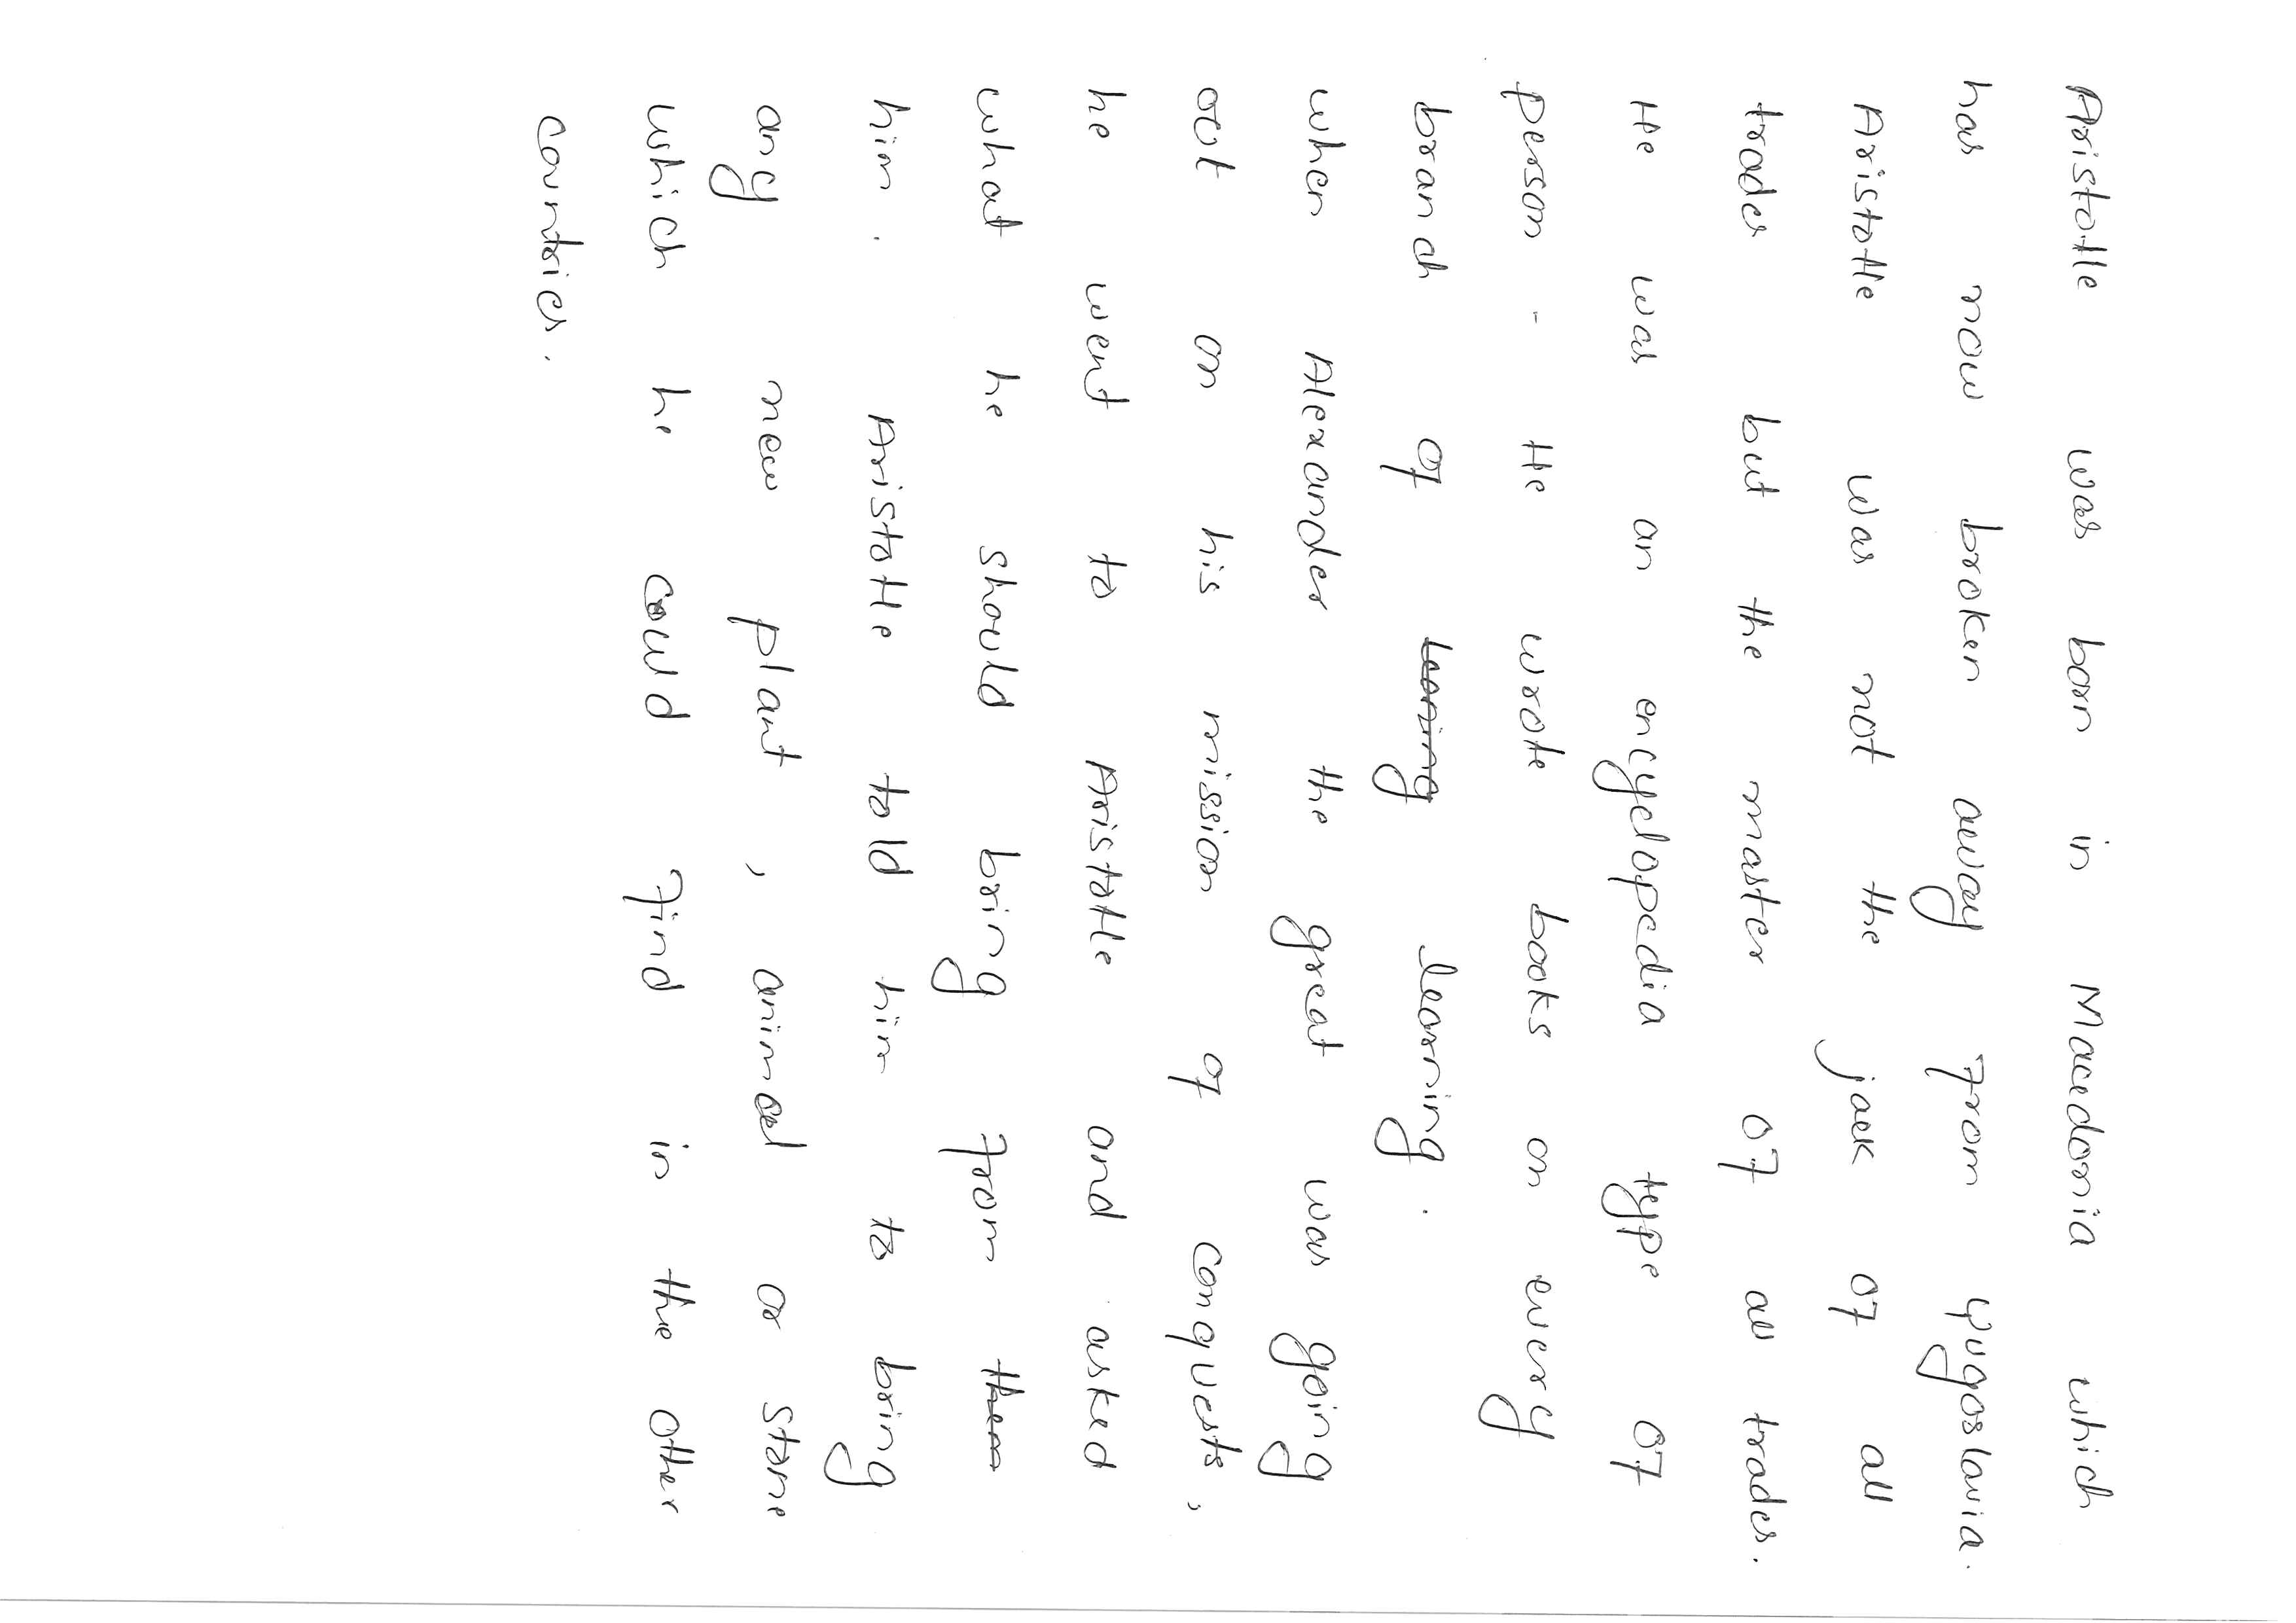 Aristotle was born in Macedonia which
has now broken away from Yugoslavia.
Aristotle was not the jack of all
trades but the master of all trades.
He was an encyclopedia type of
person - He wrote books on every
branch of learning.
when Alexander the great was going
out on his mission of conquests,
he went to Aristotle and asked
what he should bring from them
him. Aristotle told him to bring
any new plant, animal or stone
which he could find in the other
countries.